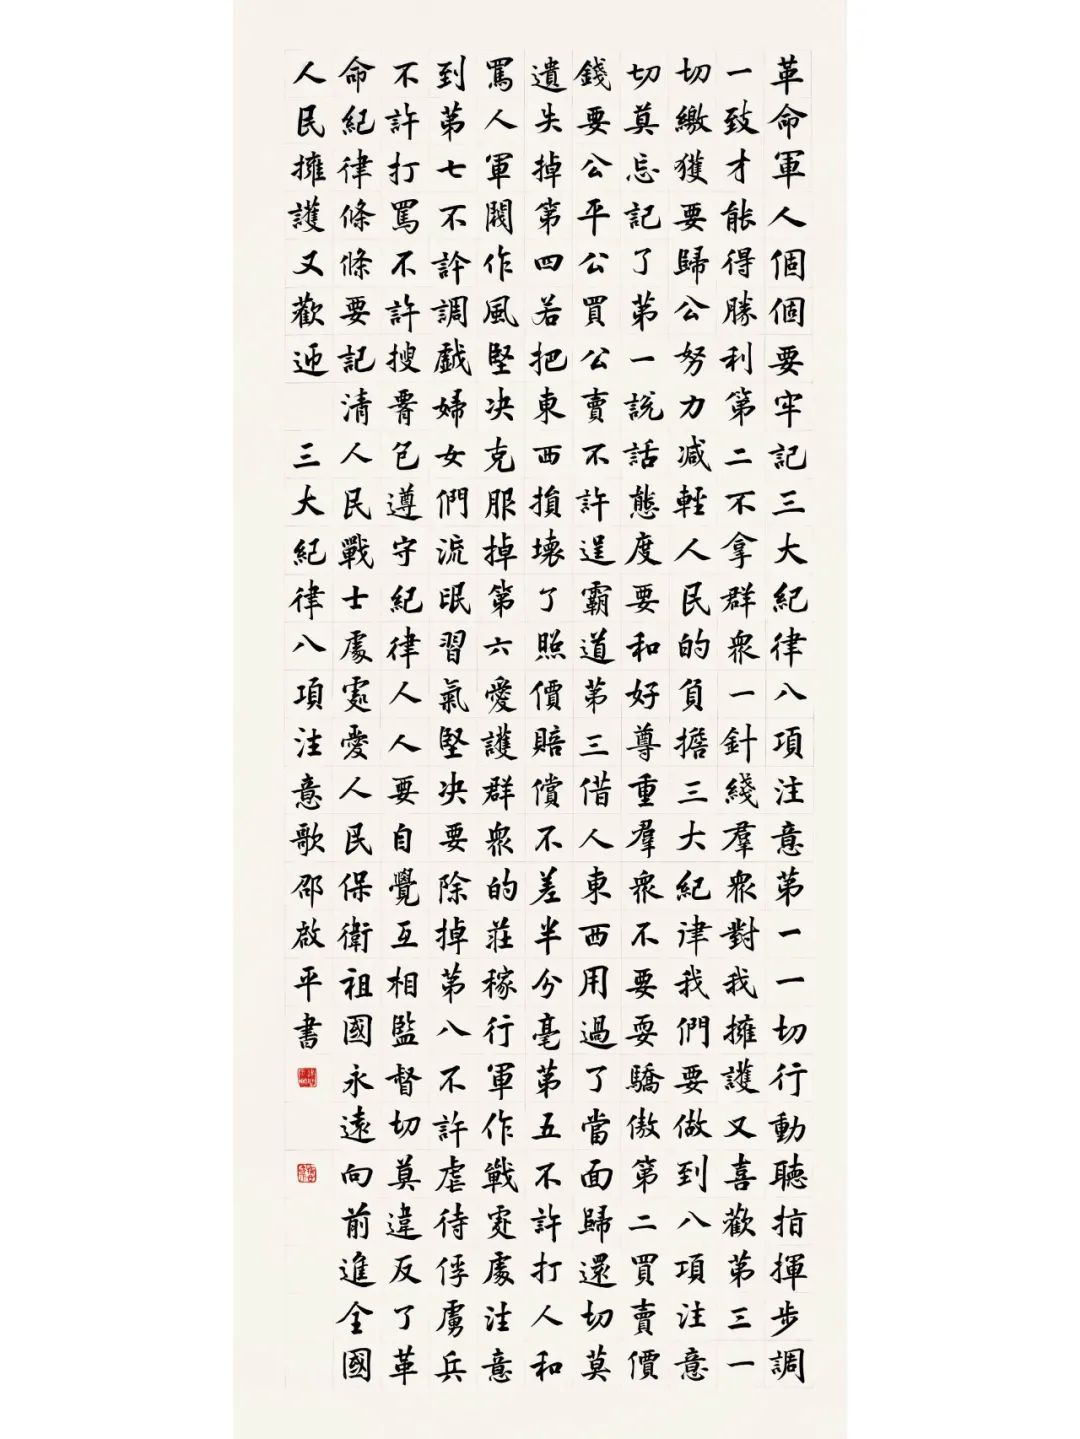 革命軍人個個要牢記三大紀律八項注意第一一切行動聽指揮步調
一致才能得勝利第二不拿群衆一針綫羣衆對我擁護又喜歡第三一
切繳獲要歸公努力减輕人民的負擔三大紀律我們要做到八項注意
切莫忘記了第一説話態度要和好尊重羣衆不要耍驕傲第二買賣價
錢要公平公買公賣不許逞霸道第三借人東西用過了當面歸還切莫
遺失掉第四若把東西損壞了照價賠償不差半分毫第五不許打人和
罵人軍閥作風堅决克服掉第六愛護群衆的莊稼行軍作戰處處注意
到第七不許調戲婦女們流氓習氣堅决要除掉第八不許虐待俘虜兵
不許打罵不許搜腰包遵守紀律人人要自覺互相監督切莫違反了革
命紀律條條要記清人民戰士處處愛人民保衛祖國永遠向前進全國
人民擁護又歡迎 三大紀律八項注意歌邵啟平書